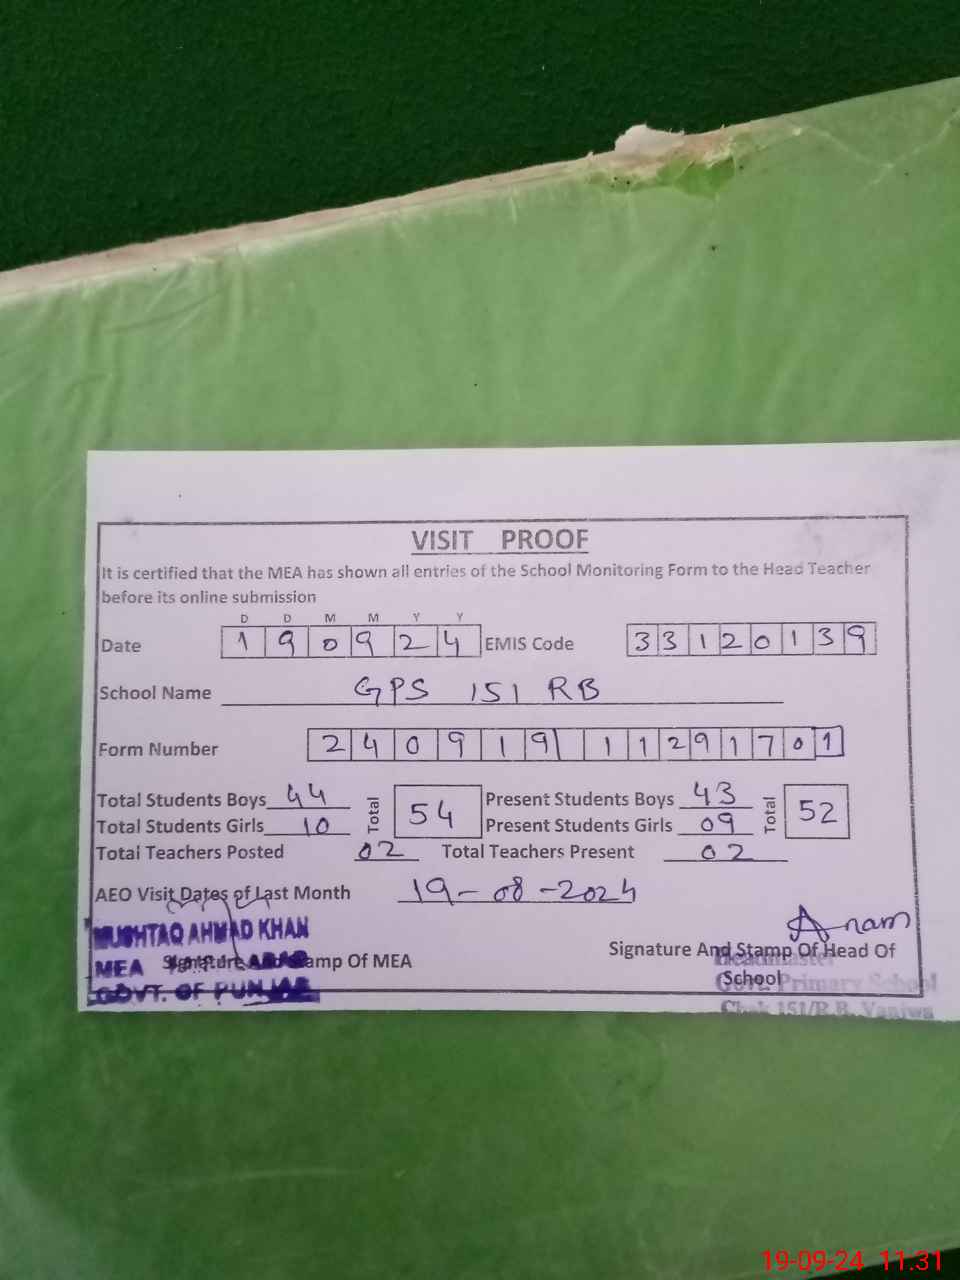 VISIT PROOF
It is certified that the MEA has shown all entries of the School Monitoring Form to the Head Teacher
before its online submission
D D M M Y Y
Date 1 9 0 9 2 4 EMIS Code 3 3 1 2 0 1 3 9
School Name GPS 151 RB
Form Number 2 4 0 9 1 9 1 1 2 9 1 7 0 1
Total Students Boys 44 Total 54 Present Students Boys 43 Total 52
Total Students Girls 10 Present Students Girls 09
Total Teachers Posted 02 Total Teachers Present 02
AEO Visit Dates of Last Month 19-08-2024
MUSHTAQ AHMAD KHAN
MEA
GOVT. OF PUNJAB
Signature And Stamp Of MEA
Anam
Signature And Stamp Of Head Of
School
Headmaster
Govt. Primary School
Chak 151/R.B.
19-09-24 11.31